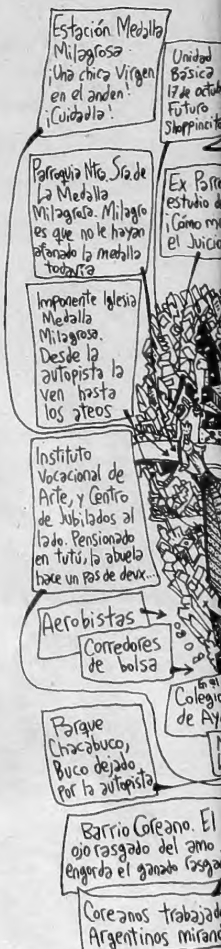 Estación Medalla
Milagrosa.
¡Una chica Virgen
en el anden!
¡Cuidadla!
Unidad
Básica
17 de octub
Futuro
Shoppincito
Parroquia Ntra. Sra. de
La Medalla
Milagrosa. Milagro
es que no le hayan
afanado la medalla
todavía
Ex Parro
estudio d
¡Cómo m
el Juicio
Imponente Iglesia
Medalla
Milagrosa.
Desde la
autopista la
ven hasta
los ateos
Instituto
Vocacional de
Arte, y Centro
de Jubilados al
lado. Pensionado
en tutú, la abuela
hace un pas de deux...
Aerobistas
Corredores
de bolsa
En el
Colegio
de Ay
Parque
Chacabuco,
Buco dejado
por la autopista
Barrio Coreano. El
ojo rasgado del amo
engorda el ganado rasga
Coreanos trabajad
Argentinos miran